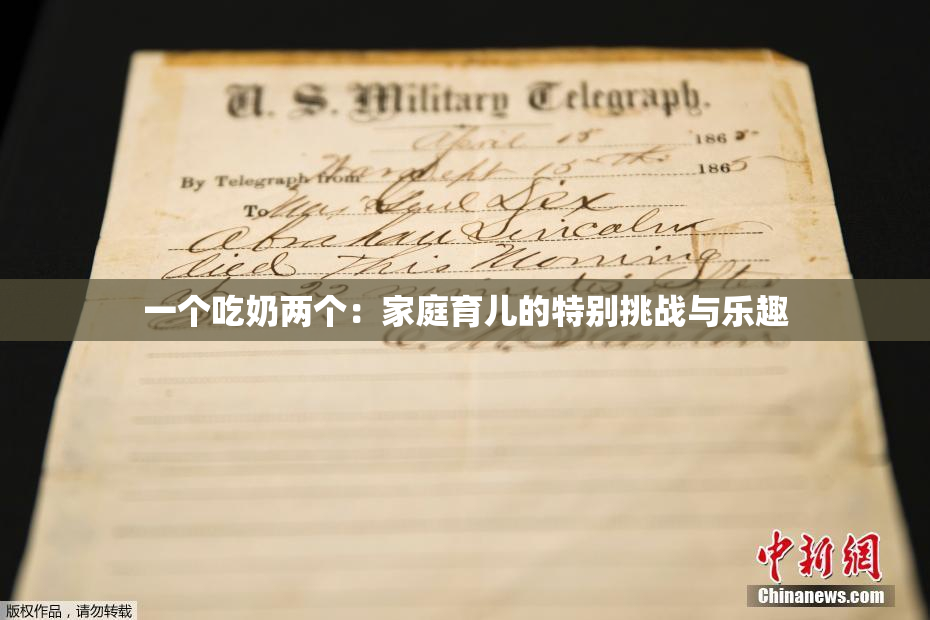 U. S. Military Telegraph.
April 15 1865
By Telegraph from War Dept 15th 1865
To Maj Genl Dix
Abraham Lincoln
died This Morning
at 22 minutes after
一个吃奶两个：家庭育儿的特别挑战与乐趣
E. M. Stanton
中新网
Chinanews.com
版权作品，请勿转载